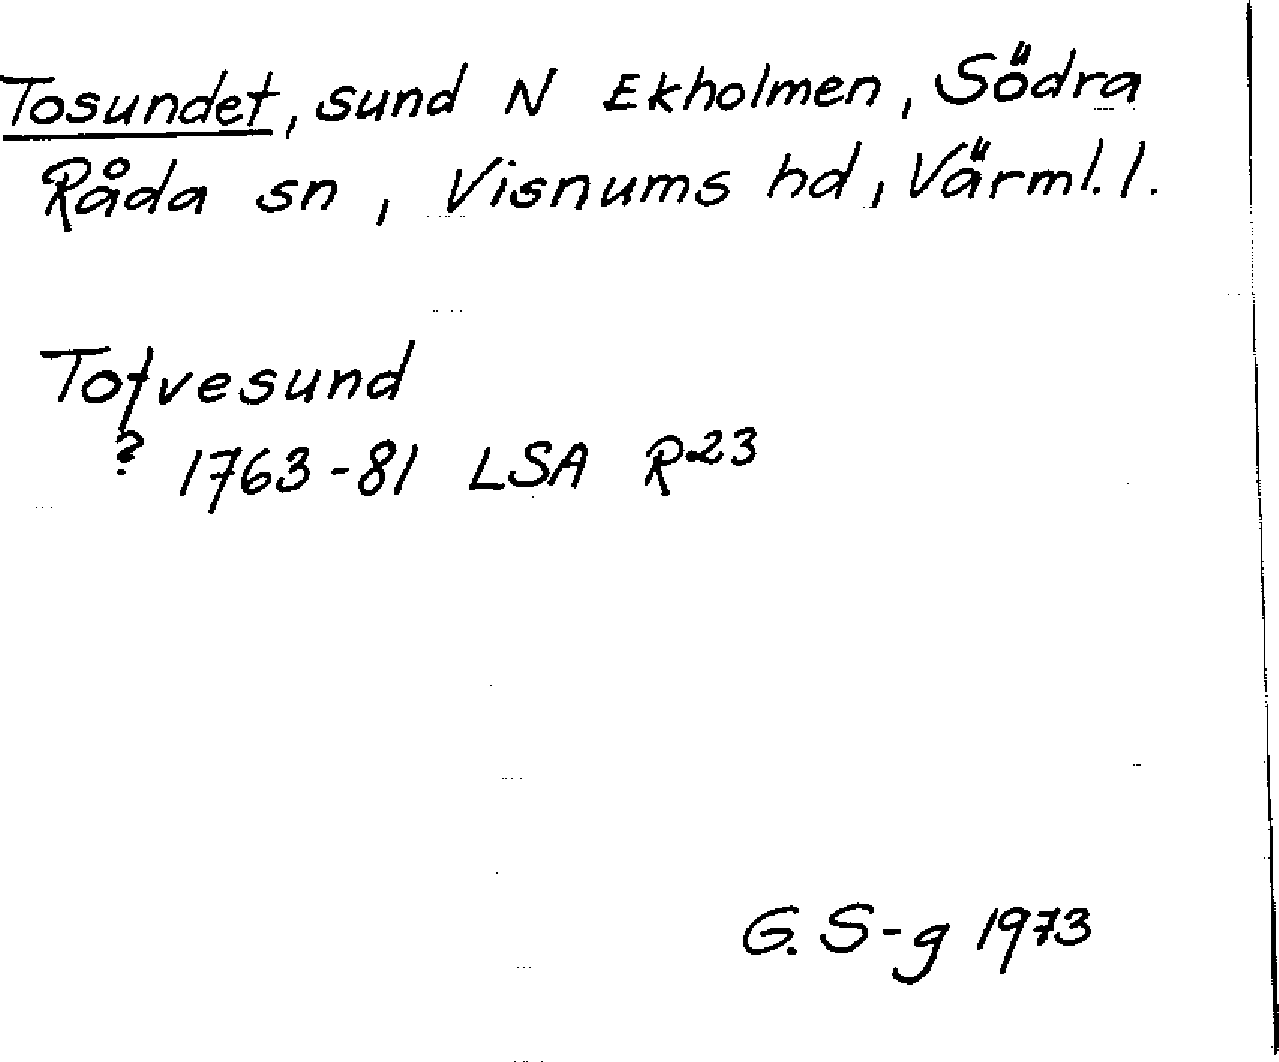 Tosundet, sund N Ekholmen, Södra
Råda sn, Visnums hd, Värml. l.
Tofvesund
? 1763-81 LSA R23
G. S-g 1973